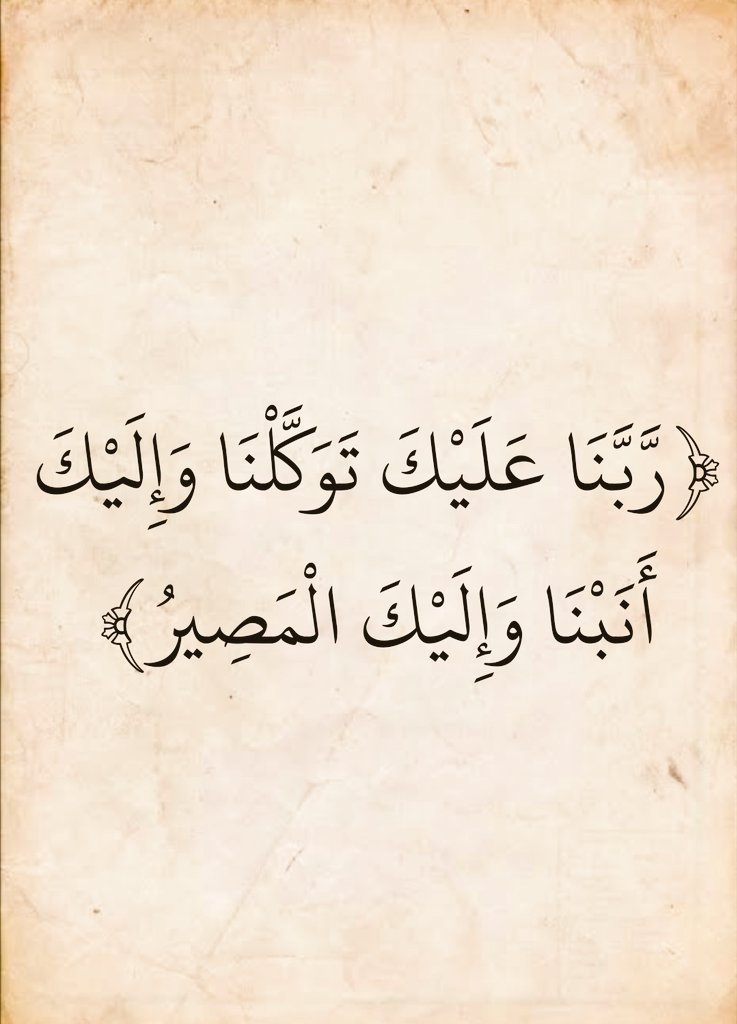 ﴿رَّبَّنَا عَلَيْكَ تَوَكَّلْنَا وَإِلَيْكَ
أَنَبْنَا وَإِلَيْكَ الْمَصِيرُ﴾